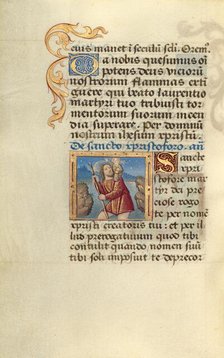 ceus manet i secula scli. Orem⁹
Da nobis quesumus oī
potens deus vicioruʒ
nostrorum flammas exti
guere qui beato laurentio
martyri tuo tribuisti tor
mentorum suorum incen
dia superare. Per dominū
nostrum ihesum xpristū.
De sancto xpristoforo. añ
Sancte
xpristo
fore mar
tyr dei preci
ose roga
te per nomē
xpristi creatoris tui: et per il
lud prerogatiuum quod tibi
contulit quando nomen suū
tibi soli imposuit te deprecor